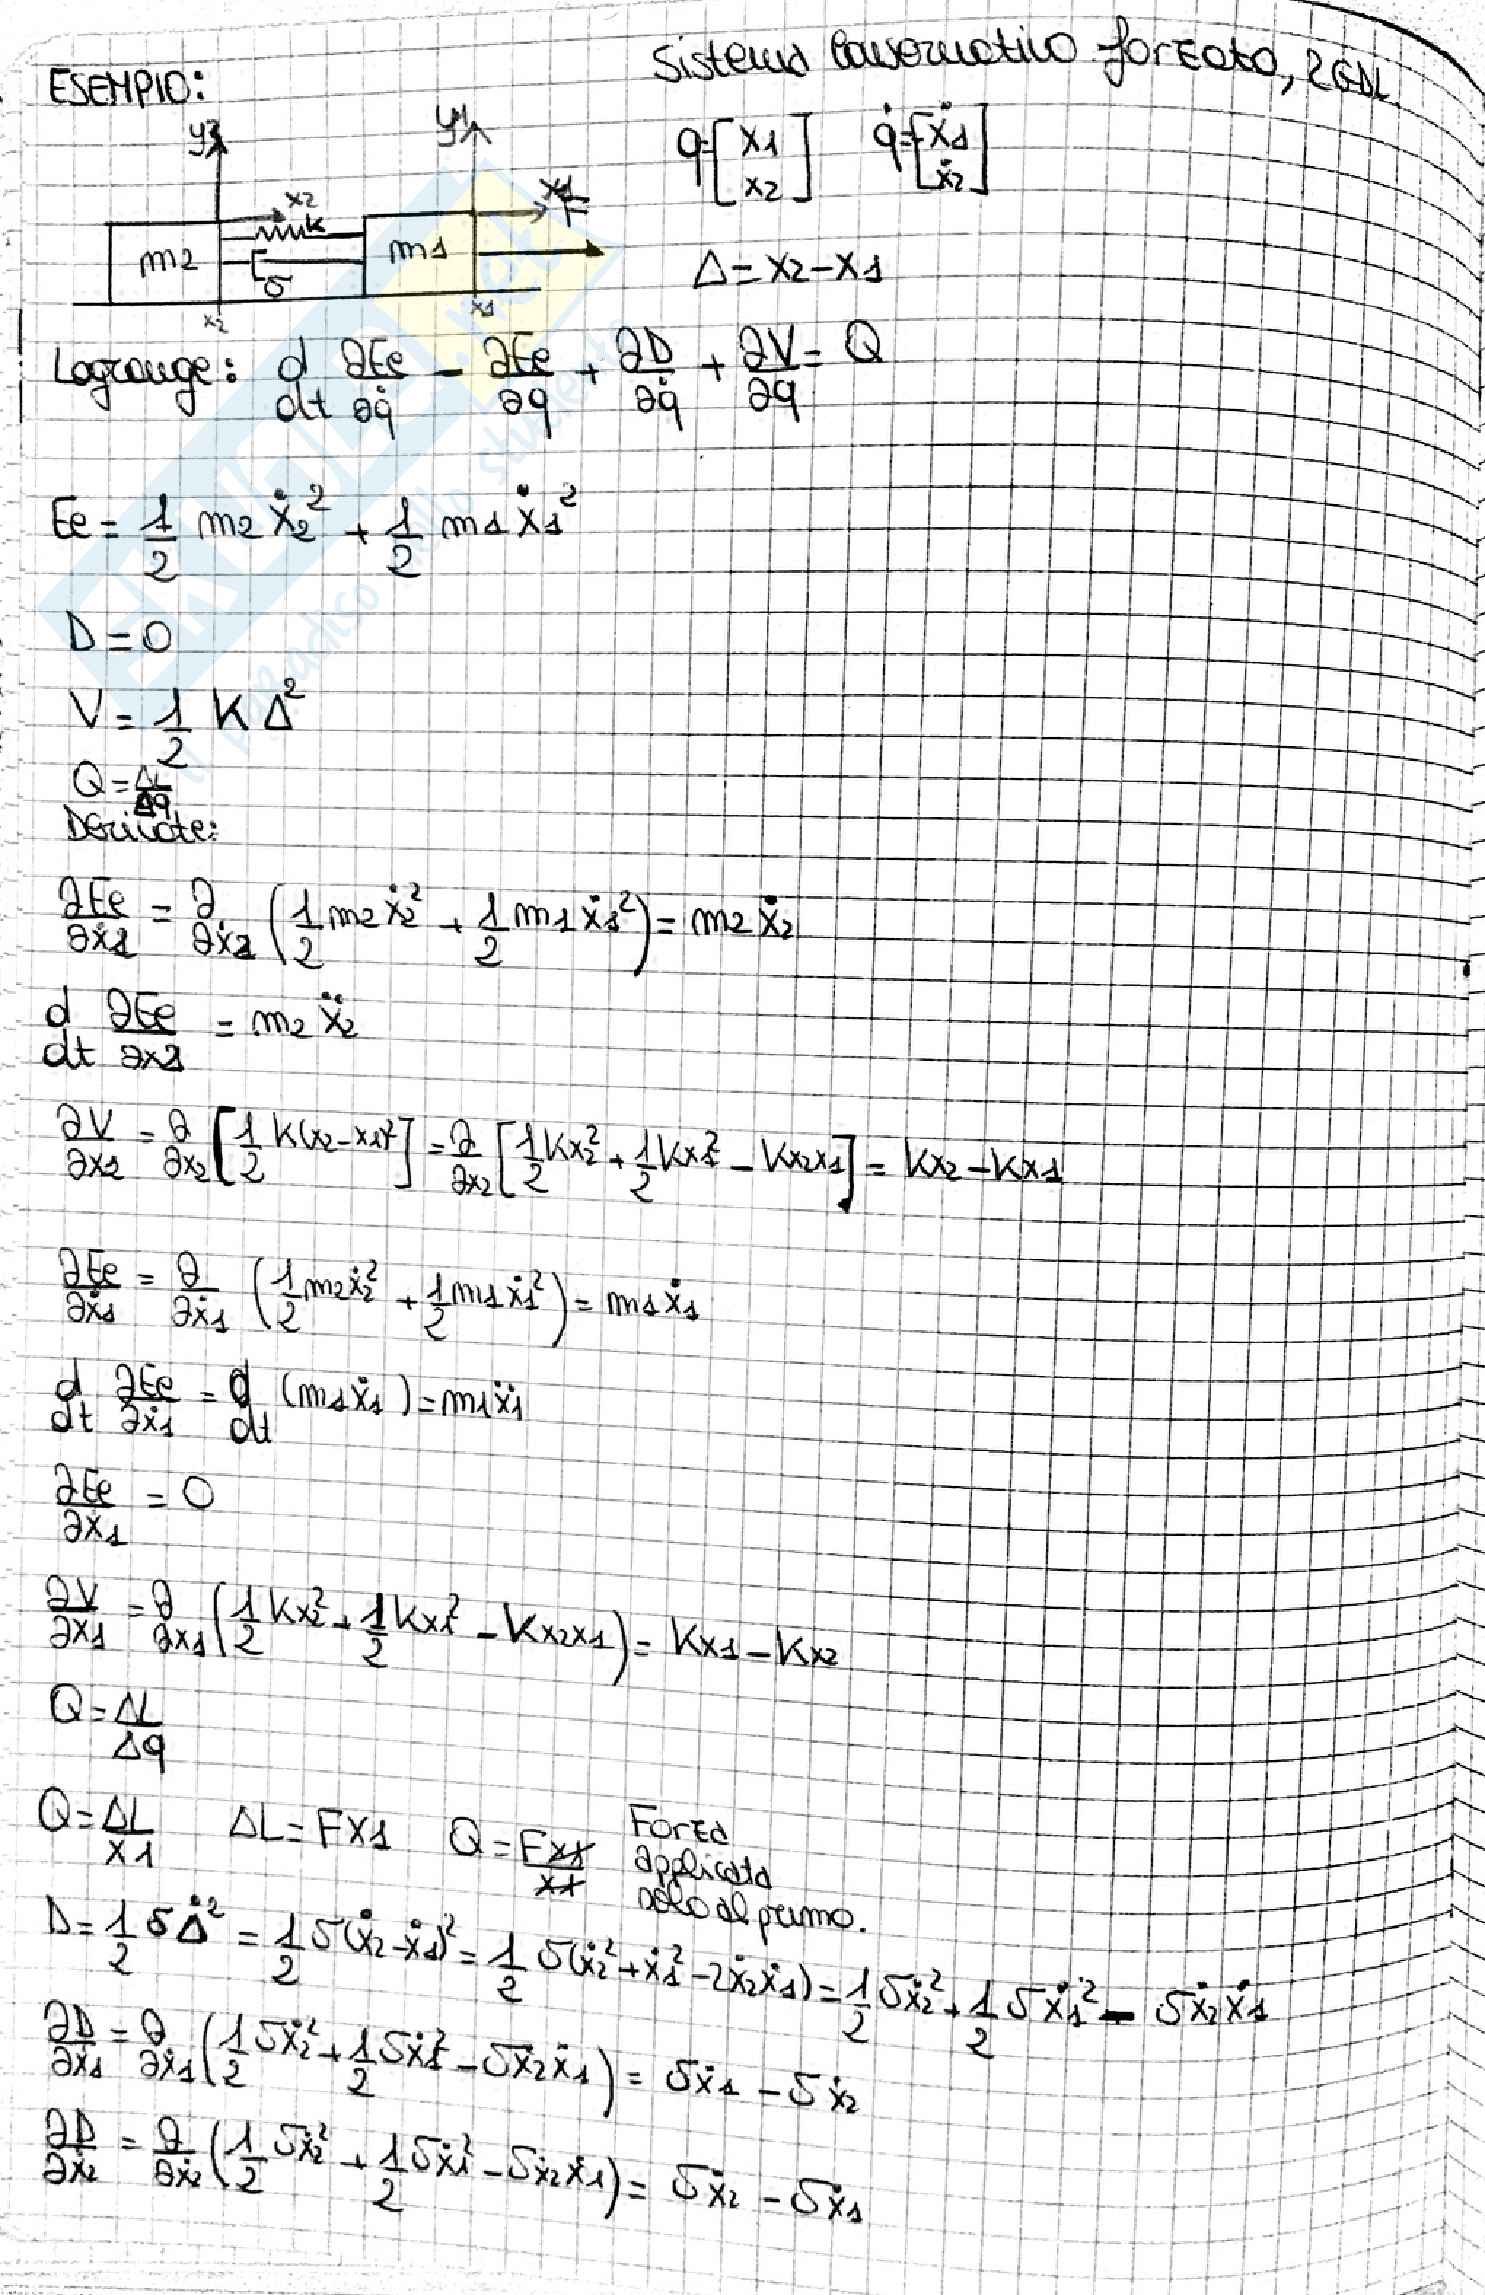 Sistema Conservativo forzato, 2GDL
ESEMPIO:
y2 y1
q=[x1 x2] q̇=[ẋ1 ẋ2]
x2 x1 F
m2 k m1
σ
Δ=x2-x1
x2 x1
Lagrange: d/dt ∂Ec/∂q̇ - ∂Ec/∂q + ∂D/∂q̇ + ∂V/∂q = Q
Ec = 1/2 m2 ẋ2² + 1/2 m1 ẋ1²
D=0
V=1/2 K Δ²
Q=ΔL/Δq
Derivate:
∂Ec/∂ẋ2 = ∂/∂ẋ2 (1/2 m2 ẋ2² + 1/2 m1 ẋ1²) = m2 ẋ2
d/dt ∂Ec/∂x2 = m2 ẍ2
∂V/∂x2 = ∂/∂x2 [1/2 K(x2-x1)²] = ∂/∂x2 [1/2 Kx2² + 1/2 Kx1² - Kx2x1] = Kx2-Kx1
∂Ec/∂ẋ1 = ∂/∂ẋ1 (1/2 m2 ẋ2² + 1/2 m1 ẋ1²) = m1 ẋ1
d/dt ∂Ec/∂ẋ1 = d/dt (m1 ẋ1) = m1 ẍ1
∂Ec/∂x1 = 0
∂V/∂x1 = ∂/∂x1 (1/2 Kx2² + 1/2 Kx1² - Kx2x1) = Kx1-Kx2
Q=ΔL/Δq
Q=ΔL/x1 ΔL=Fx1 Q=Fx1/x1 Forza
applicata
solo al primo.
D=1/2 σ Δ̇² = 1/2 σ(ẋ2-ẋ1)² = 1/2 σ(ẋ2²+ẋ1²-2ẋ2ẋ1) = 1/2 σẋ2² + 1/2 σẋ1² - σẋ2ẋ1
∂D/∂ẋ1 = ∂/∂ẋ1 (1/2 σẋ2² + 1/2 σẋ1² - σẋ2ẋ1) = σẋ1 - σẋ2
∂D/∂ẋ2 = ∂/∂ẋ2 (1/2 σẋ2² + 1/2 σẋ1² - σẋ2ẋ1) = σẋ2 - σẋ1